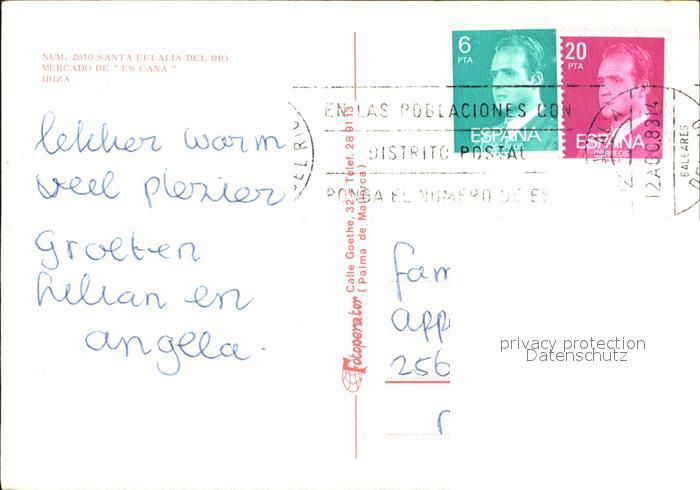 NUM. 2010 SANTA EULALIA DEL RIO
MERCADO DE "ES CANA"
IBIZA
lekker warm
veel plezier
Groeten
Lilian en
angela.
Fotoperator Calle Goethe, 32 - Telef. 28 91 13
(Palma de Mallorca)
6
PTA
ESPAÑA
20
PTA
ESPAÑA
CORREOS
EN LAS POBLACIONES CON
DISTRITO POSTAL
PONGA EL NUMERO DE ES
DEL RIO
12 AGO. 83
BALEARES
fam
app
256
privacy protection
Datenschutz